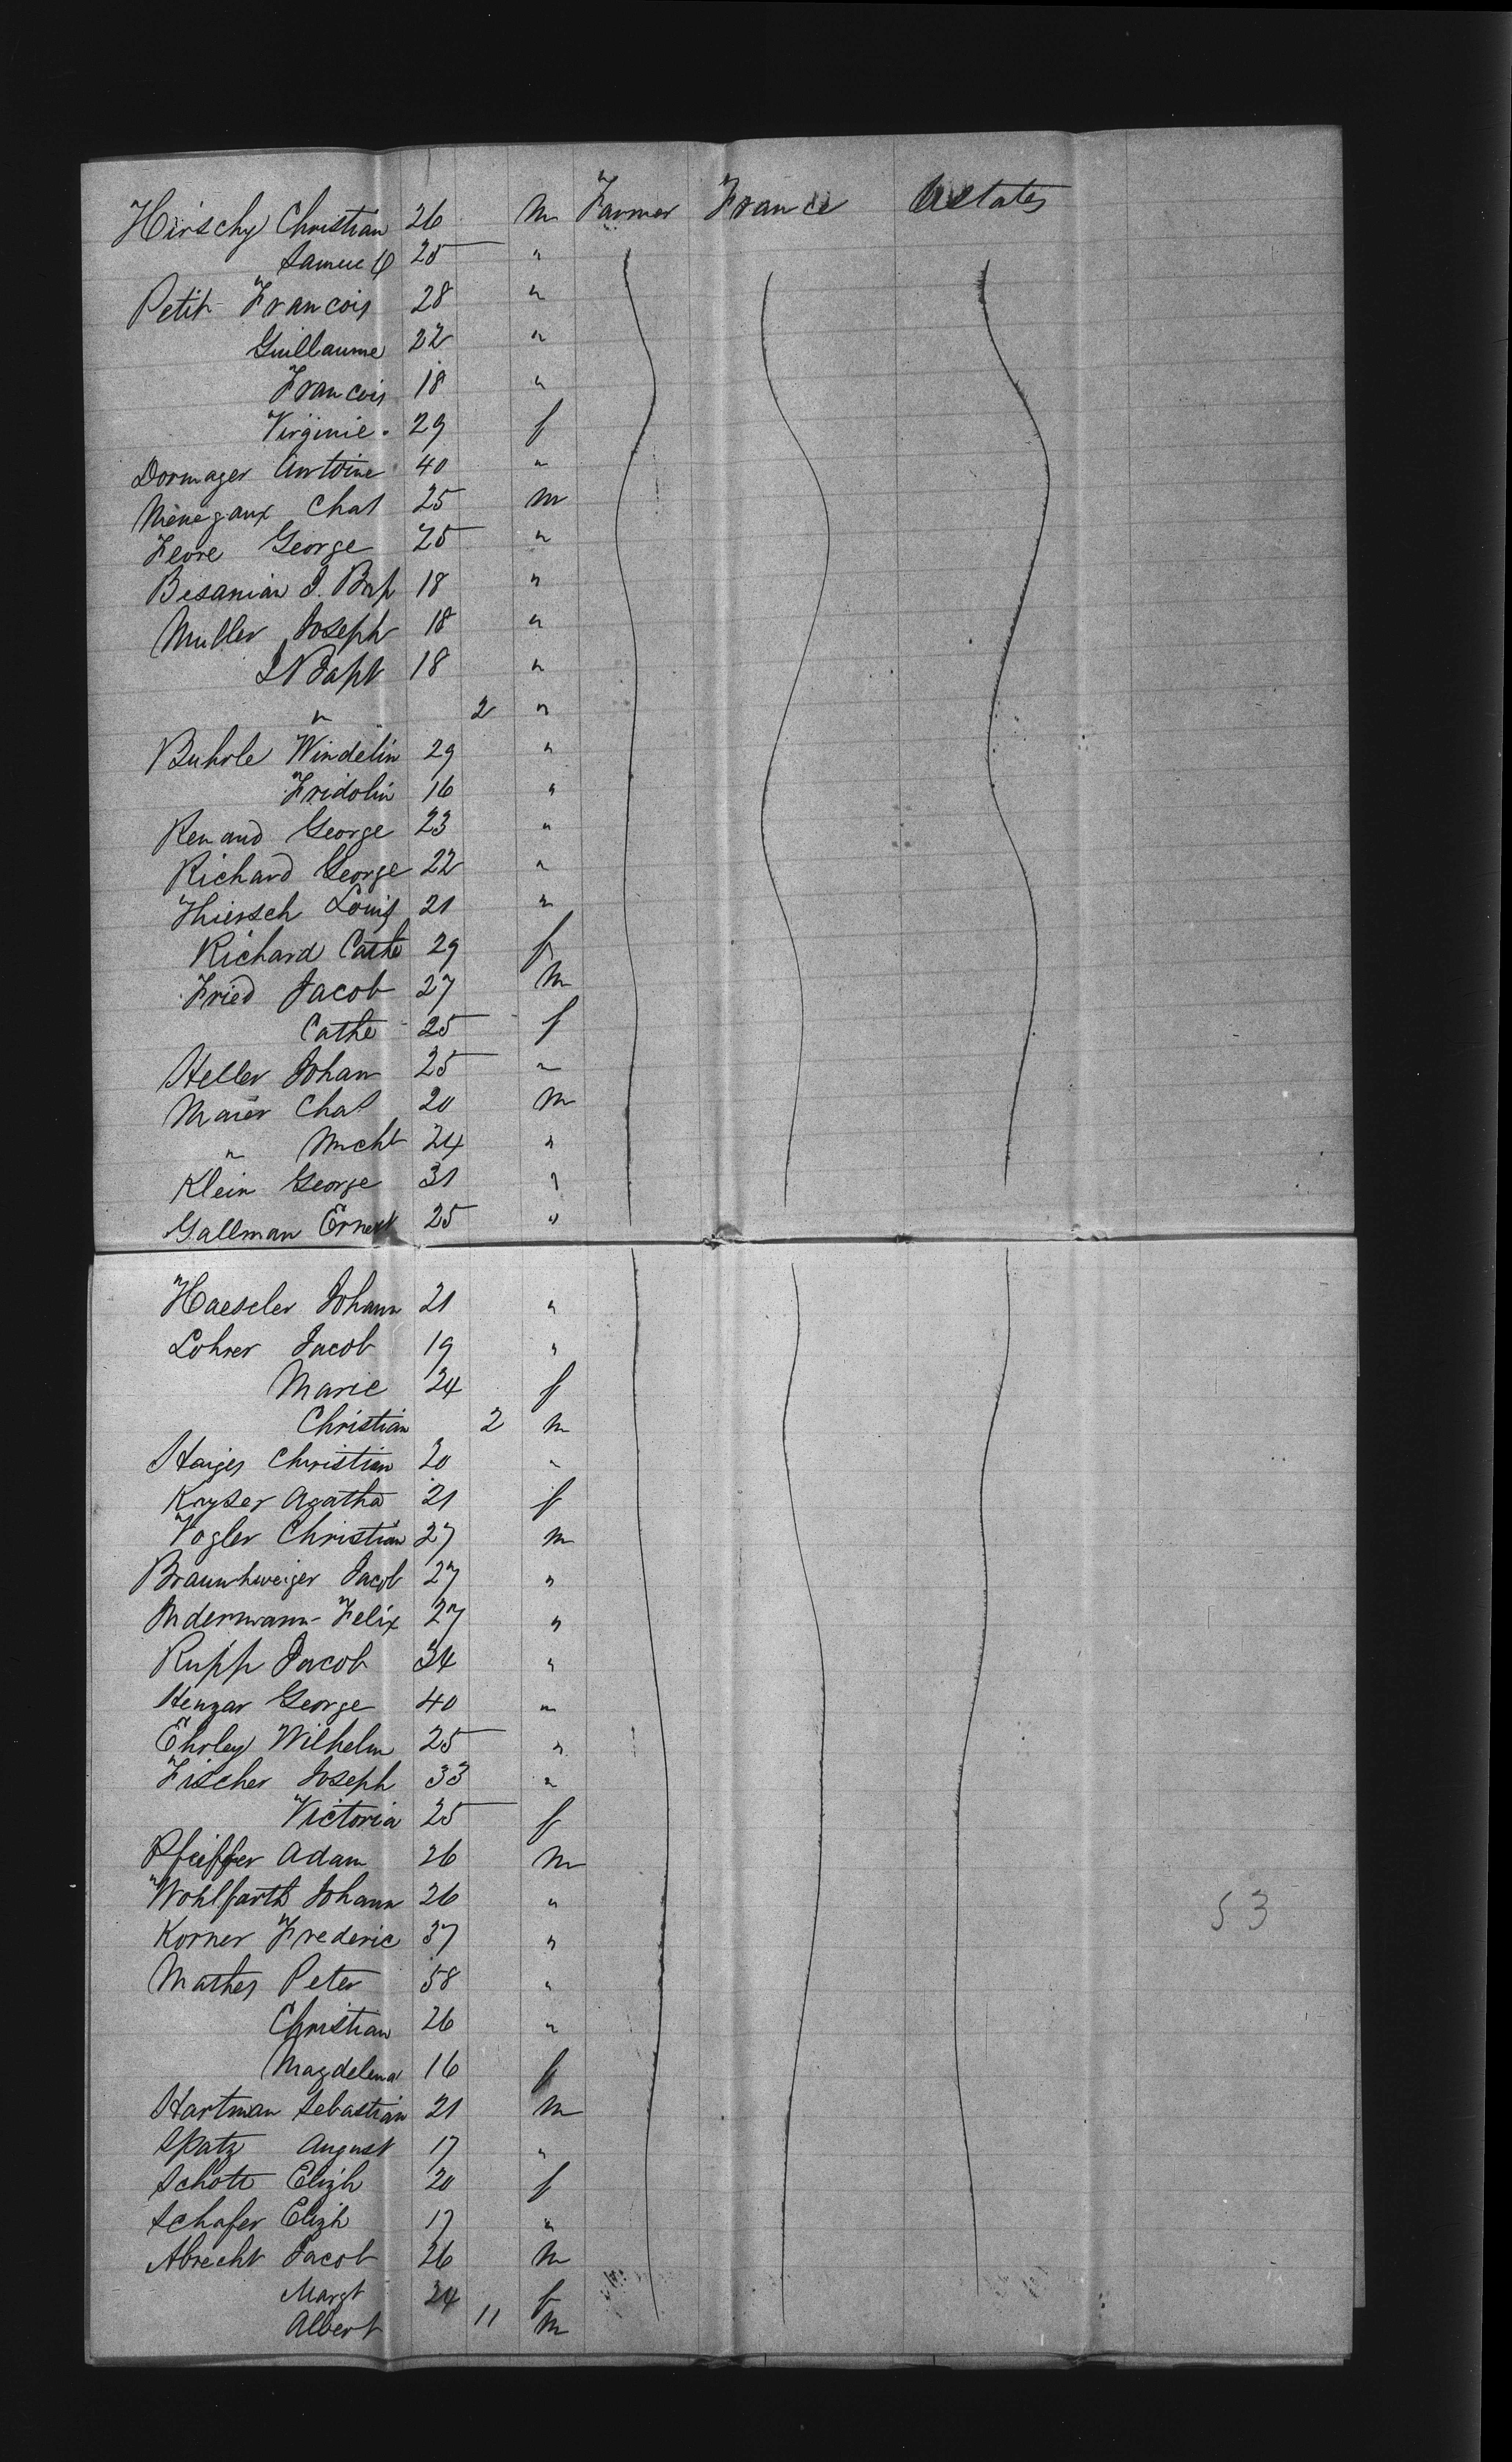 Hirschy Christian 26 m Farmer France U States
Samuel 25 "
Petit Francois 28 "
Guillaume 22 "
Francois 18 "
Virginie 29 f
Dormager Antoine 40 "
Menegaux Chas 25 m
George 25 "
Besanian J. Bap 18 "
Muller Joseph 18 "
Bapt 18 "
" 2 "
Buhrle Windelin 29 "
Fridolin 16 "
Renand George 23 "
Richard George 22 "
Thiersch Louis 21 "
Richard Cathe 29 f
Fried Jacob 27 m
Cathe 25 f
Heller Johan 25 "
Maier Chas 20 m
" Michl 24 "
Klein George 31 "
Gallman Ernest 25 "
Haeseler Johann 21 "
Lohrer Jacob 19 "
Marie 24 f
Christian 2 m
Haiges Christian 20 "
Kryser Agatha 21 f
Vogler Christian 27 m
Braunhweiger Jacob 27 "
Indermann Felix 27 "
Rupp Jacob 34 "
Henzar George 40 "
Ehrley Wilhelm 25 "
Fischer Joseph 33 "
Victoria 25 f
Pfeiffer Adam 26 m
Wohlfarth Johann 26 " 53
Korner Frederic 37 "
Mathes Peter 58 "
Christian 26 "
Magdelena 16 f
Hartman Sebastian 21 m
Spatz August 17 "
Schott Elizh 20 f
Schafer Elizh 17 "
Abrecht Jacob 26 m
Margt 24 f
Albert 11 m